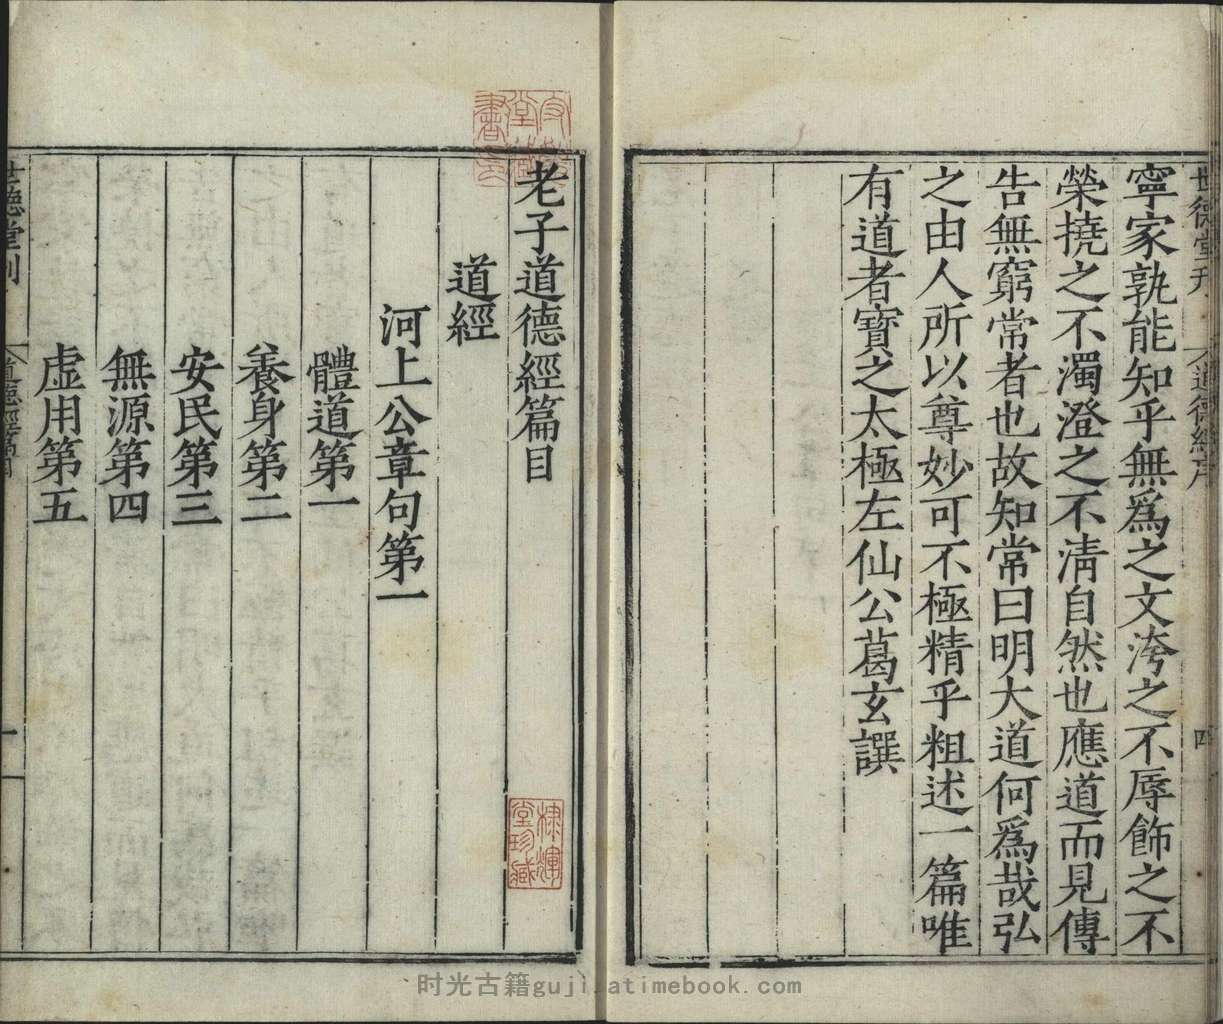 世德堂刊
道德經序
四
寧家孰能知乎無爲之文洿之不辱飾之不
榮撓之不濁澄之不清自然也應道而見傳
告無窮常者也故知常曰明大道何爲哉弘
之由人所以尊妙可不極精乎粗述一篇唯
有道者寶之太極左仙公葛玄譔
老子道德經篇目
道經
河上公章句第一
體道第一
養身第二
安民第三
無源第四
虛用第五
世德堂刊
道德經篇目
一
堂珍藏
时光古籍guji.atimebook.com